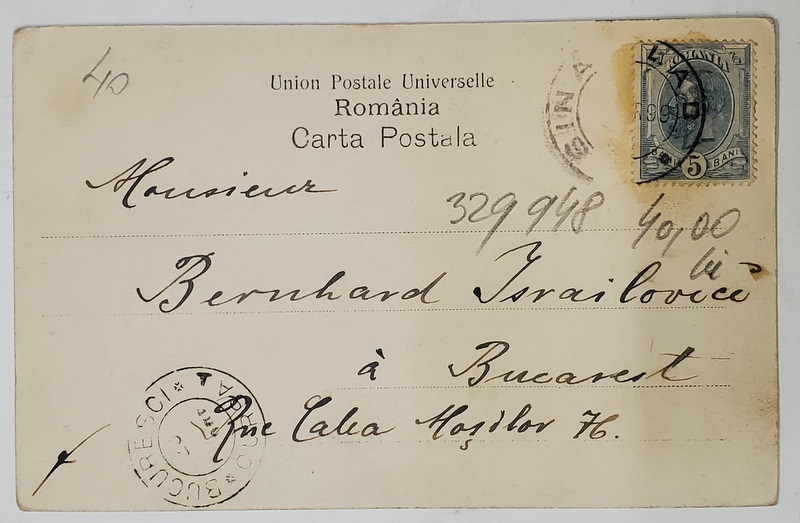 40
Union Postale Universelle
România
Carta Postala
5 BANI
Monsieur
329 948 40,00
lei
Bernhard Israilovici
à Bucarest
Rue Calea Moşilor 76.
BUCURESCI